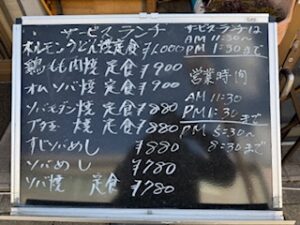 サービスランチ
ホルモンうどん焼定食 ¥1,000
鶏もも肉焼 定食 ¥900
オムソバ焼 定食 ¥900
ソバモダン焼 定食 ¥880
ブタ玉 焼 定食 ¥880
すじソバめし ¥880
ソバめし ¥780
ソバ焼 定食 ¥780
サービスランチは
AM 11:30〜
PM 1:30まで
営業時間
AM 11:30
PM 1:30
PM 5:30〜
8:30まで